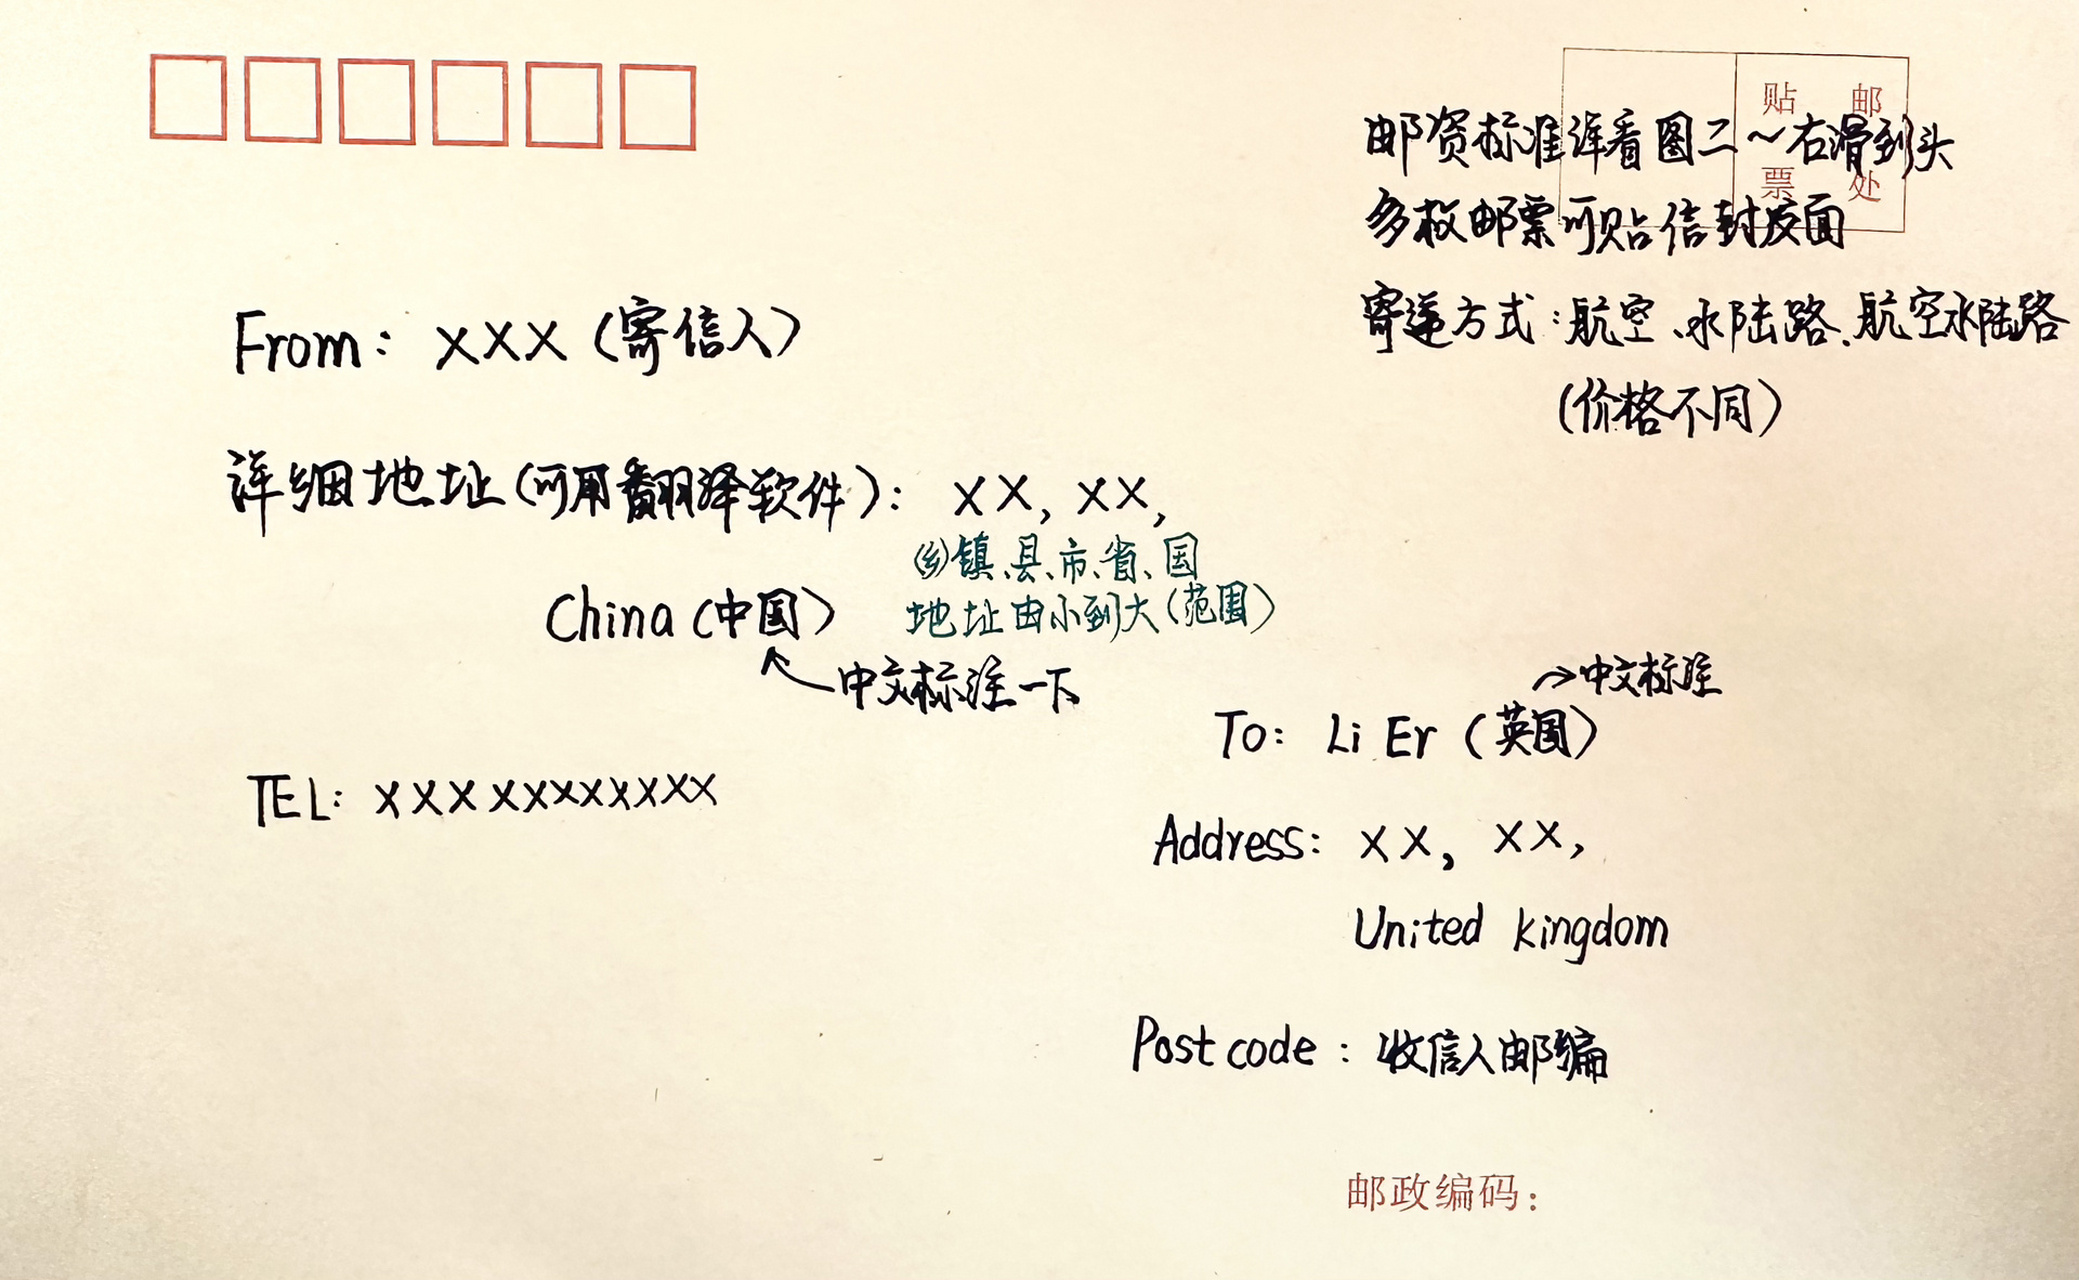 贴 邮
票 处
邮资标准详看图二~右滑到头
多枚邮票可贴信封反面
寄递方式:航空、水陆路、航空水陆路
(价格不同)
From: XXX (寄信人)
详细地址(可用翻译软件): XX, XX,
(乡)镇、县、市、省、国
China (中国)
地址由小到大(范围)
中文标注一下
TEL: XXXXXXXXXXX
中文标注
To: Li Er (英国)
Address: XX, XX,
United kingdom
Post code : 收信人邮编
邮政编码: